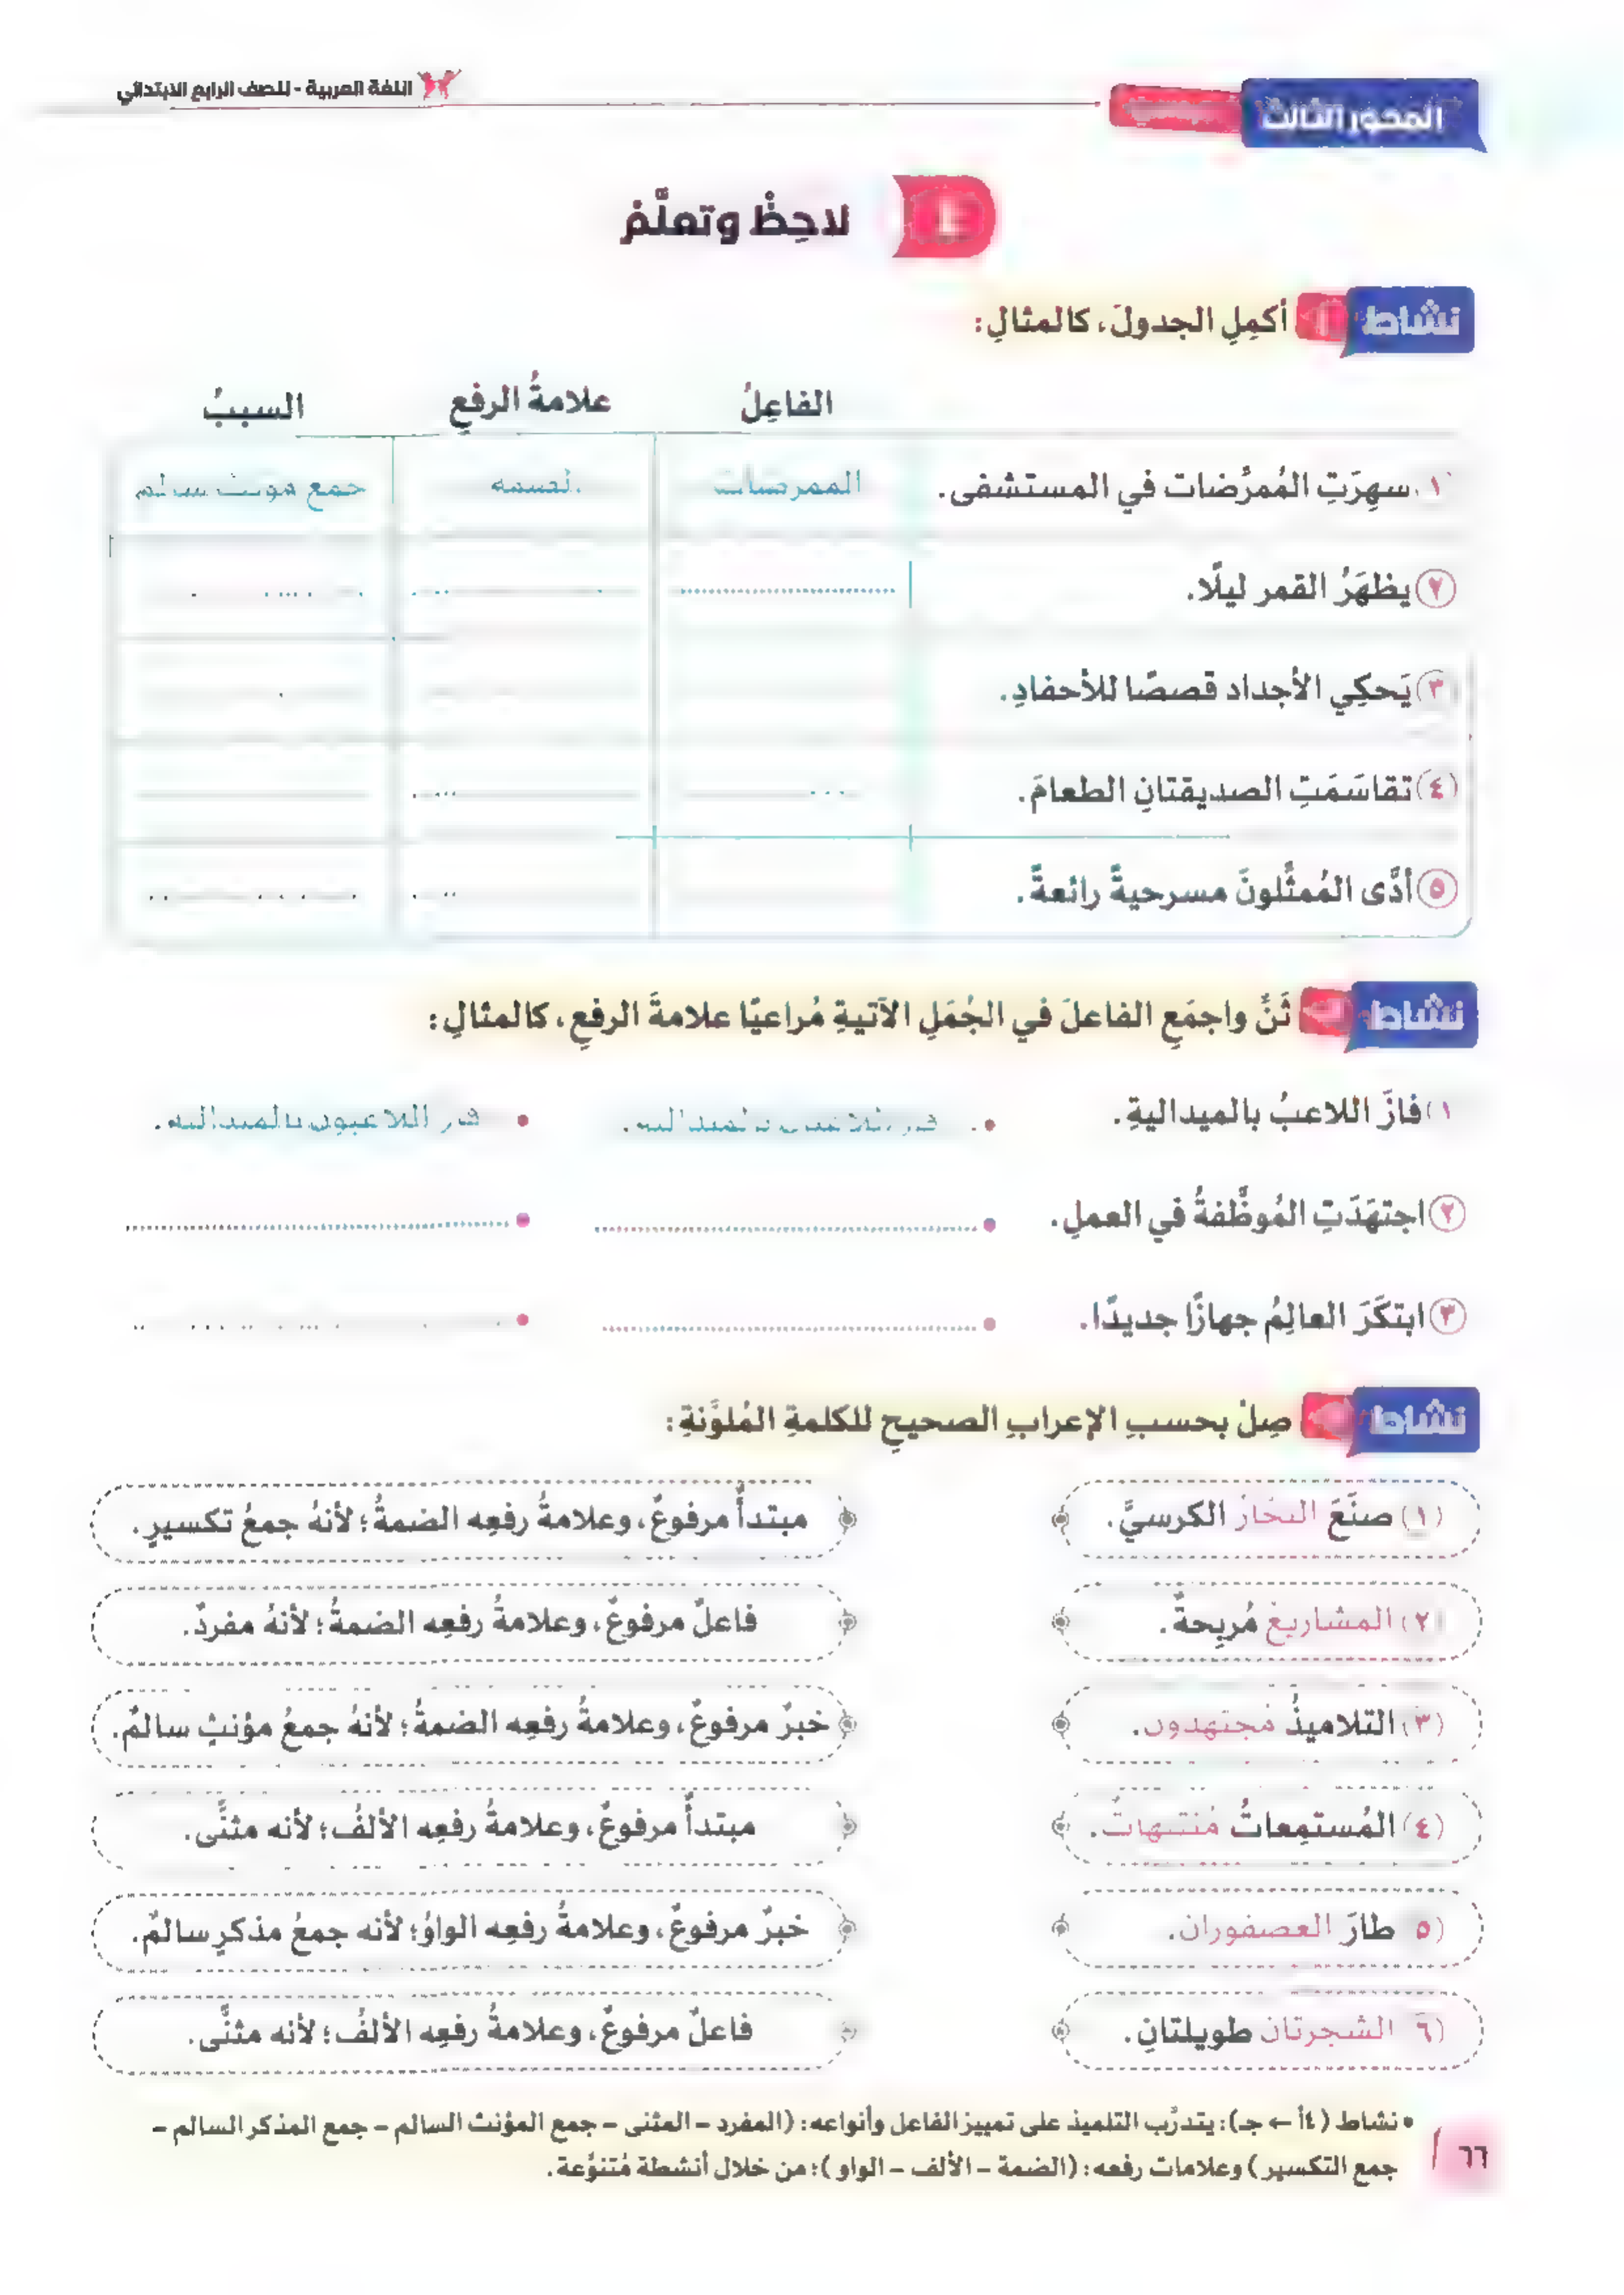 اللغة العربية - للصف الرابع الابتدائي
المحور الثالث
لاحِظْ وتعلَّمْ
نشاط أ أكمِلِ الجدولَ، كالمثالِ:
الفاعِلُ علامةُ الرفعِ السببُ
١ سهِرَتِ المُمرِّضات في المستشفى. الممرضات الضمة جمع مؤنث سالم
٢ يظهَرُ القمر ليلًا.
٣ يَحكِي الأجداد قصصًا للأحفادِ.
٤ تقاسَمَتِ الصديقتانِ الطعامَ.
٥ أدَّى المُمثِّلونَ مسرحيةً رائعةً.
نشاط ب ثَنِّ واجمَعِ الفاعلَ في الجُمَلِ الآتيةِ مُراعيًا علامةَ الرفعِ، كالمثالِ:
١ فازَ اللاعبُ بالميداليةِ. • فاز اللاعبان بالميدالية. • فاز اللاعبون بالميدالية.
٢ اجتهَدَتِ المُوظَّفةُ في العملِ. • •
٣ ابتكَرَ العالِمُ جهازًا جديدًا. • •
نشاط صِلْ بحسبِ الإعرابِ الصحيحِ للكلمةِ المُلوَّنةِ:
(١) صنَّعَ النجارُ الكرسيَّ. مبتدأٌ مرفوعٌ، وعلامةُ رفعِه الضمةُ؛ لأنهُ جمعُ تكسيرٍ.
(٢) المشاريعُ مُربِحةٌ. فاعلٌ مرفوعٌ، وعلامةُ رفعِه الضمةُ؛ لأنهُ مفردٌ.
(٣) التلاميذُ مُجتهدون. خبرٌ مرفوعٌ، وعلامةُ رفعِه الضمةُ؛ لأنهُ جمعُ مؤنثٍ سالمٌ.
(٤) المُستمِعاتُ مُنتبهاتٌ. مبتدأٌ مرفوعٌ، وعلامةُ رفعِه الألفُ؛ لأنه مثنًّى.
(٥ طارَ العصفوران. خبرٌ مرفوعٌ، وعلامةُ رفعِه الواوُ؛ لأنه جمعُ مذكرٍ سالمٌ.
(٦ الشجرتان طويلتانِ. فاعلٌ مرفوعٌ، وعلامةُ رفعِه الألفُ؛ لأنه مثنًّى.
• نشاط (٤أ ← جـ): يتدرَّب التلميذ على تمييز الفاعل وأنواعه: (المفرد – المثنى – جمع المؤنث السالم – جمع المذكر السالم –
جمع التكسير) وعلامات رفعه: (الضمة – الألف – الواو)؛ من خلال أنشطة مُتنوِّعة.
٦٦